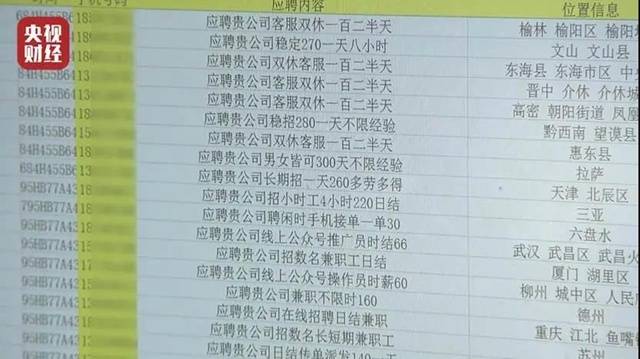 央视
财经
手机号码 应聘内容 位置信息
应聘贵公司客服双休一百二半天 榆林 榆阳区 榆阳
84H455B64 应聘贵公司稳定270一天八小时 文山 文山县
84H455B64 应聘贵公司双休客服一百二半天 东海县 东海市区 中
84H455B64 应聘贵公司客服双休一百二半天 晋中 介休 介休城
84H455B64 应聘贵公司客服双休一百二半天 高密 朝阳街道 凤凰
84H455B64 应聘贵公司稳招280一天不限经验 黔西南 望谟县
84H455B64 应聘贵公司双休客服一百二半天 惠东县
684H455B6 应聘贵公司男女皆可300天不限经验 拉萨
95HB77A43 应聘贵公司长期招一天260多劳多得 天津 北辰区
795HB77A4 应聘贵公司招小时工4小时220日结 三亚
95HB77A43 应聘贵公司聘闲时手机接单一单30 六盘水
95HB77A43 应聘贵公司线上公众号推广员时结66 武汉 武昌区 武昌
95HB77A43 应聘贵公司招数名兼职工日结 厦门 湖里区
95HB77A43 应聘贵公司线上公众号操作员时薪60 柳州 城中区 人民
95HB77A43 应聘贵公司兼职不限时160 德州
95HB77A43 应聘贵公司在线招聘日结兼职 重庆 江北 鱼嘴
95HB77A43 应聘贵公司招数名长短期兼职工 苏州
应聘贵公司日结传单派发140一天